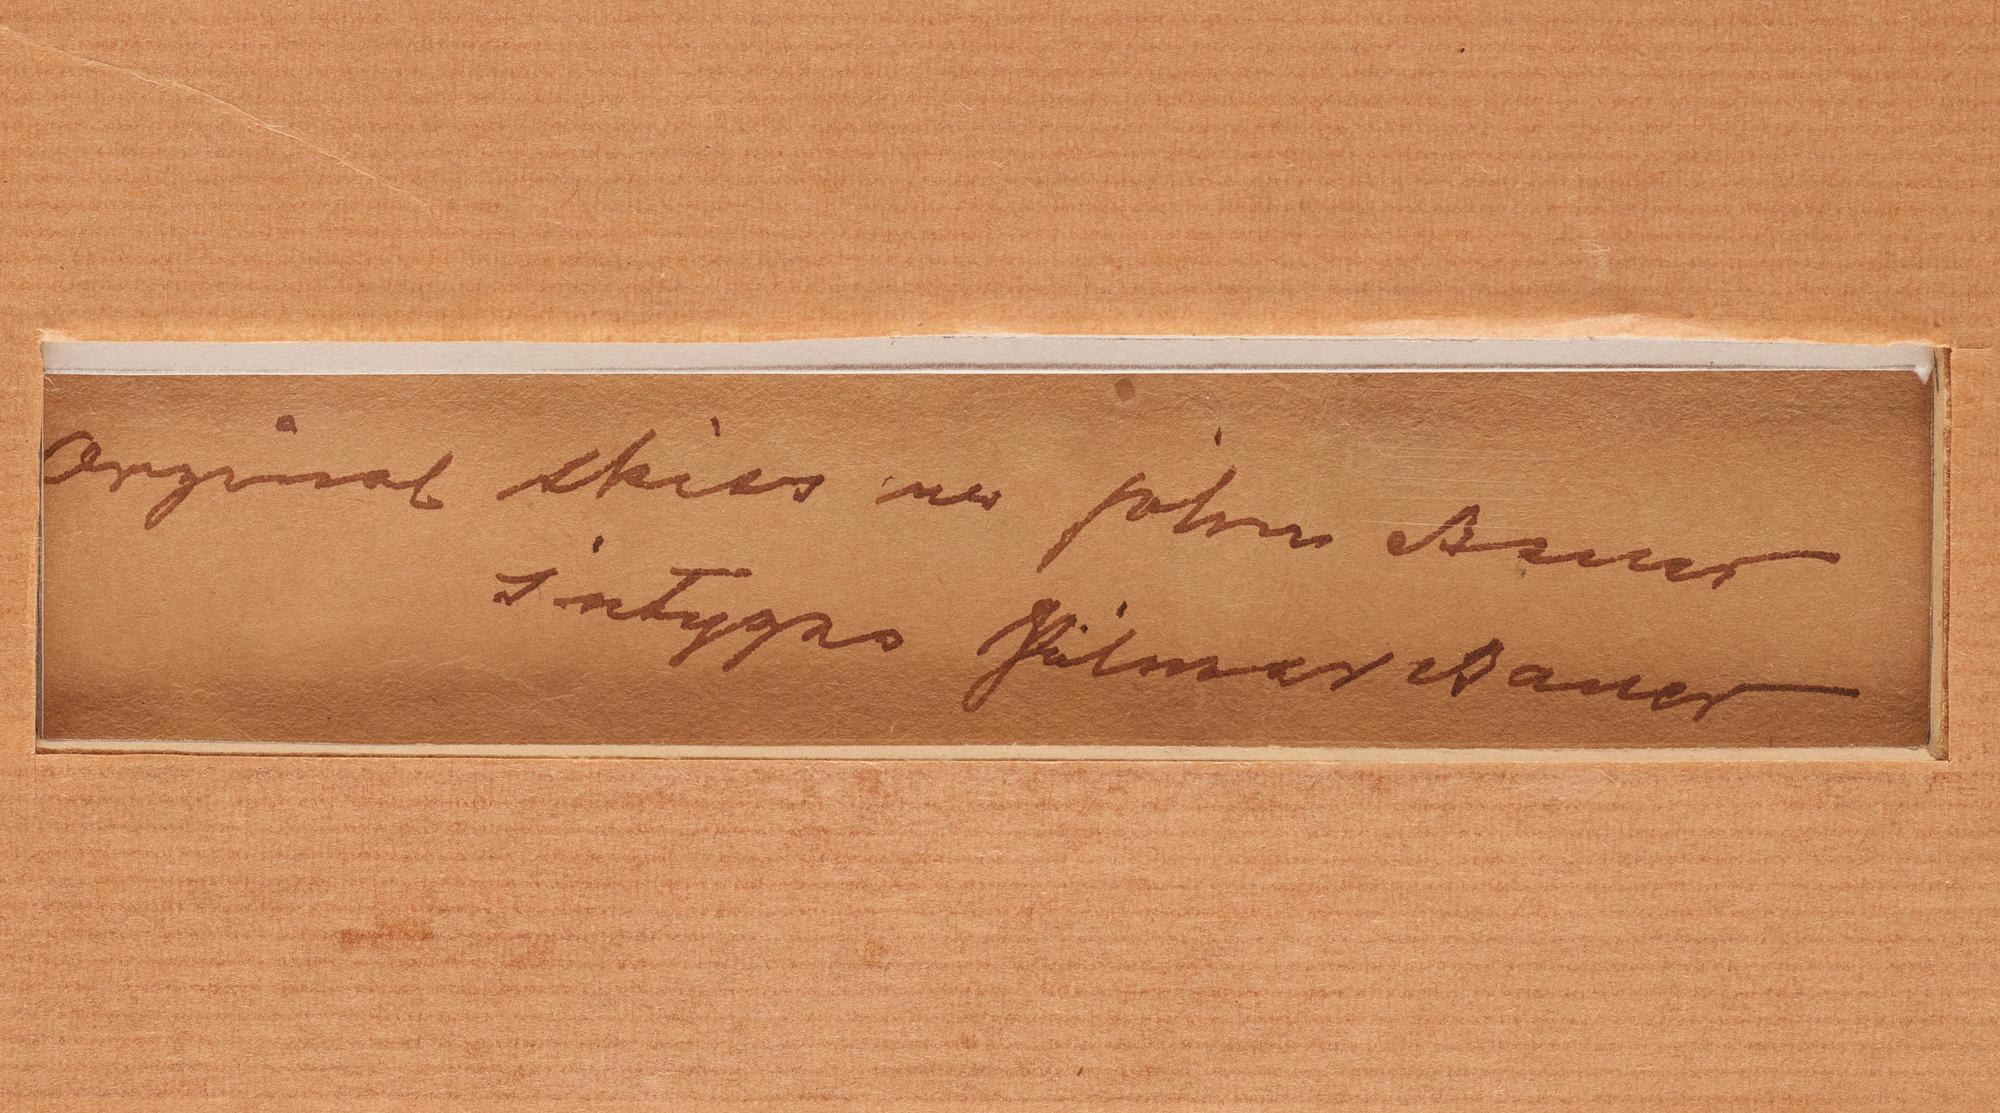 Orginal skiss av john Bauer
intygas Hjilmar Bauer